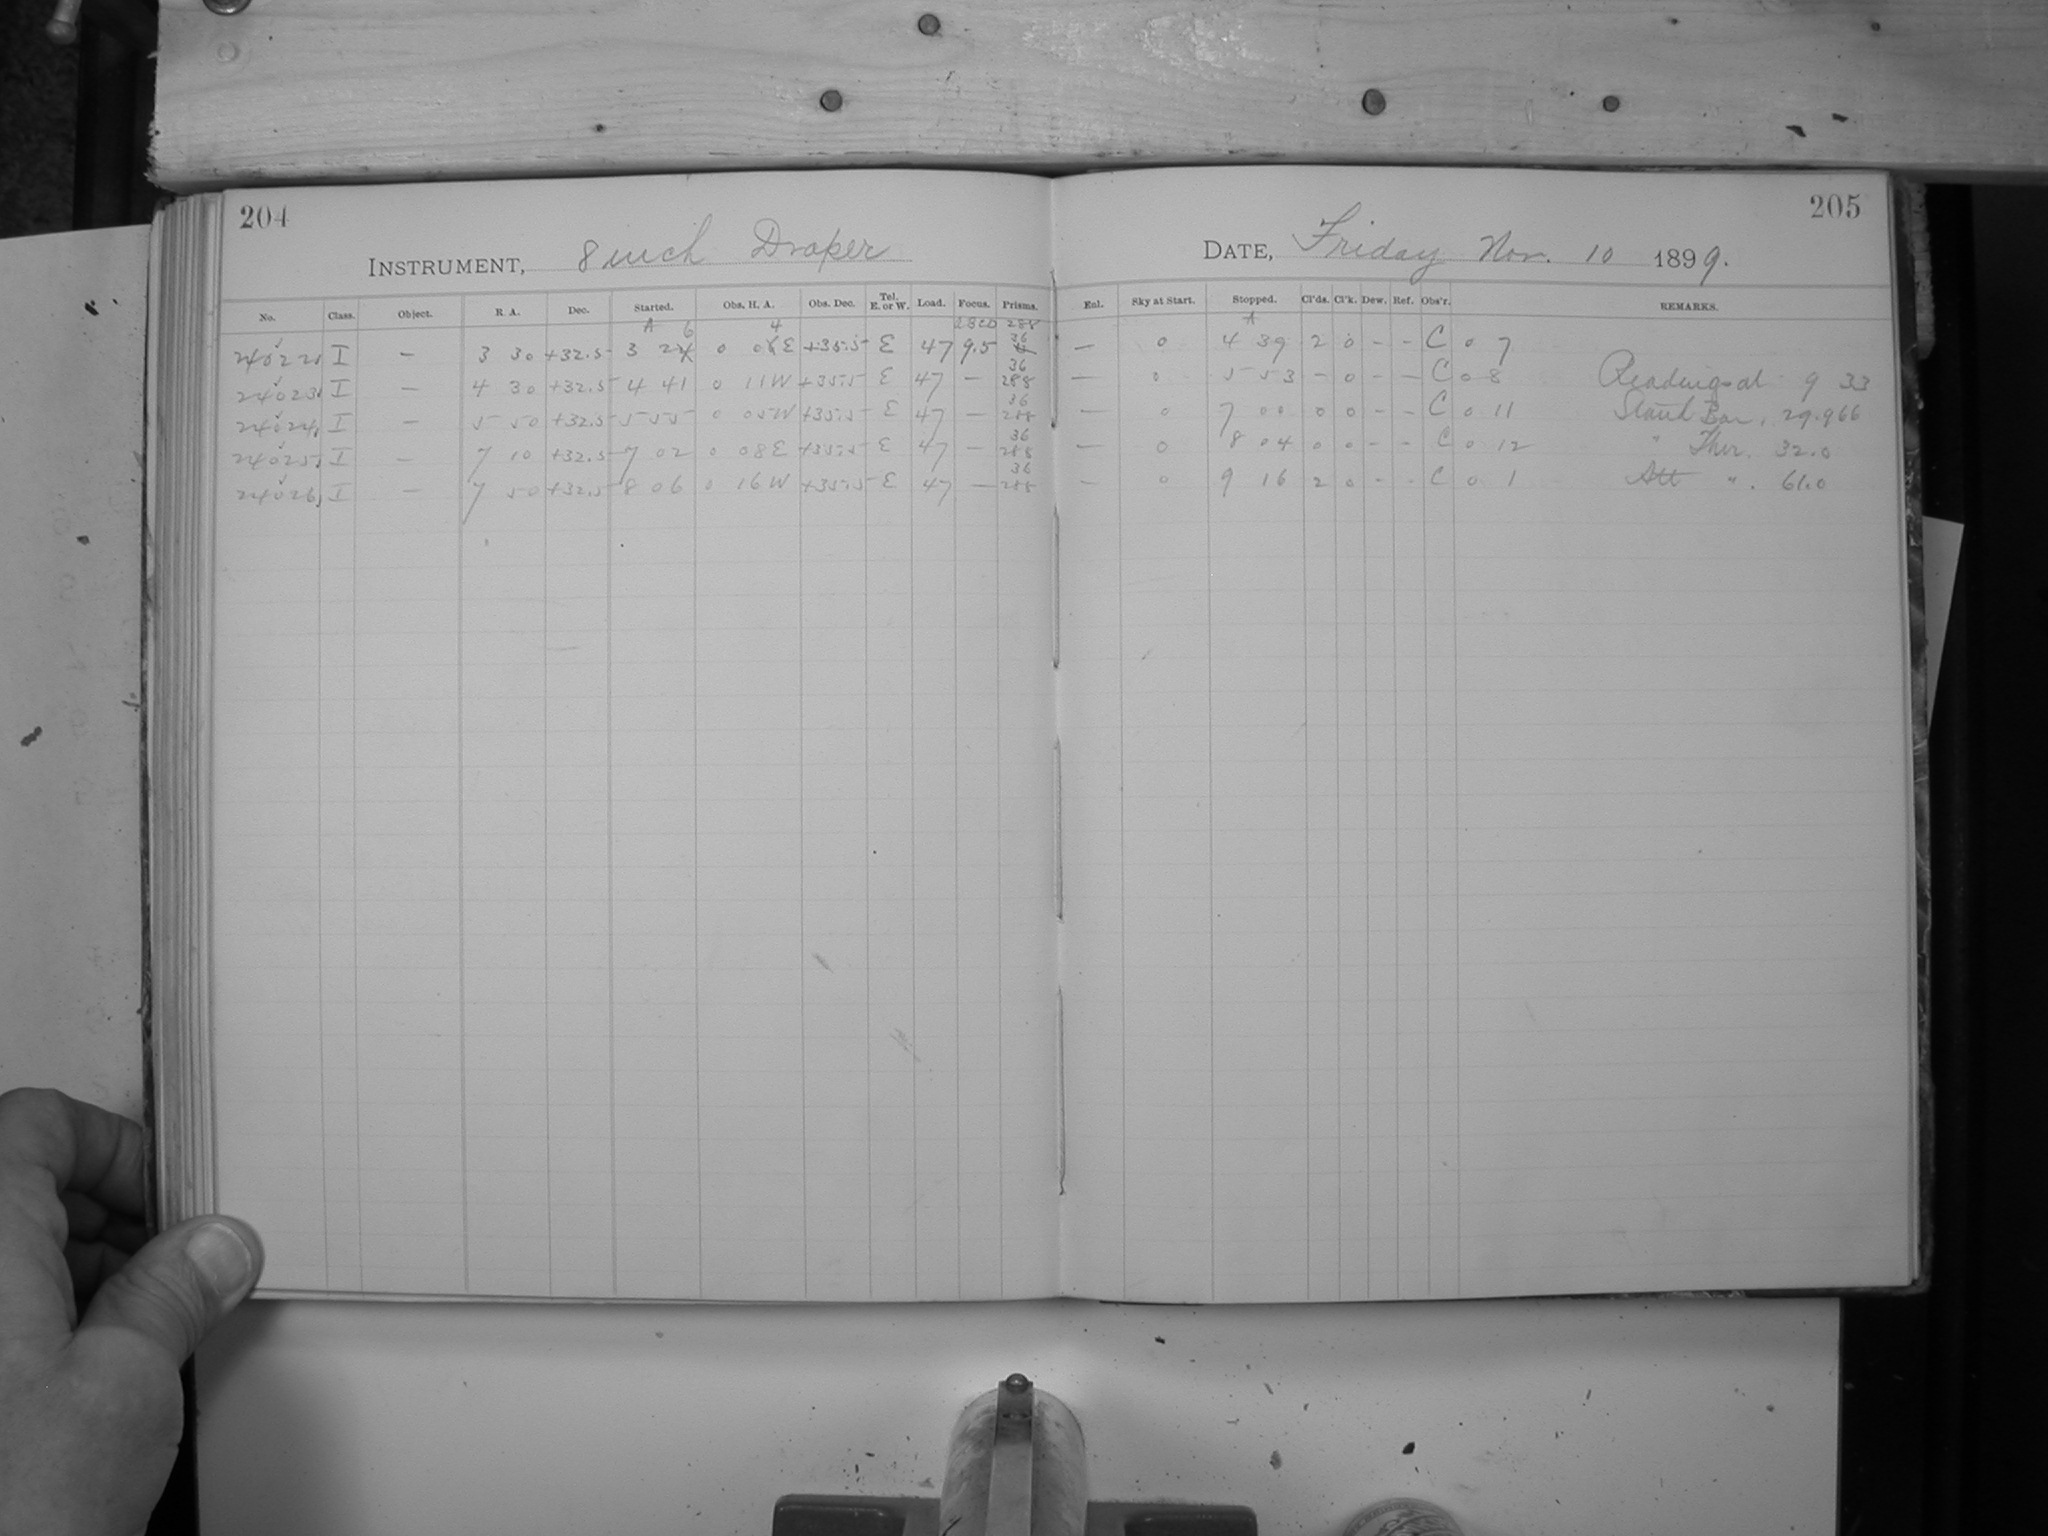 204
INSTRUMENT, 8 inch Draper
No. Class. Object. R. A. Dec. Started. Obs. H. A. Obs. Dec. Tel. E. or W. Load. Focus. Prisms.
A 6 4 288
24022 I — 3 30 +32.5 3 24 0 08 E +35.5 E 47 9.5 36
24023 I — 4 30 +32.5 4 41 0 11 W +35.5 E 47 — 36 288
24024 I — 5 50 +32.5 5 55 0 05 W +35.5 E 47 — 36 288
24025 I — 7 10 +32.5 7 02 0 08 E +35.5 E 47 — 36 288
24026 I — 7 50 +32.5 8 06 0 16 W +35.5 E 47 — 36 288
205
DATE, Friday Nov. 10 1899.
Enl. Sky at Start. Stopped. Cl'ds. Cl'k. Dew. Ref. Obs'r. REMARKS.
A
— 0 4 39 2 0 - - C 0 7
— 0 5 53 - 0 - - C 0 8 Readings at 9 33
— 0 7 00 0 0 - - C 0 11 Stand Bar. 29.966
— 0 8 04 0 0 - - C 0 12 " Ther. 32.0
— 0 9 16 2 0 - - C 0 1 Att ". 61.0